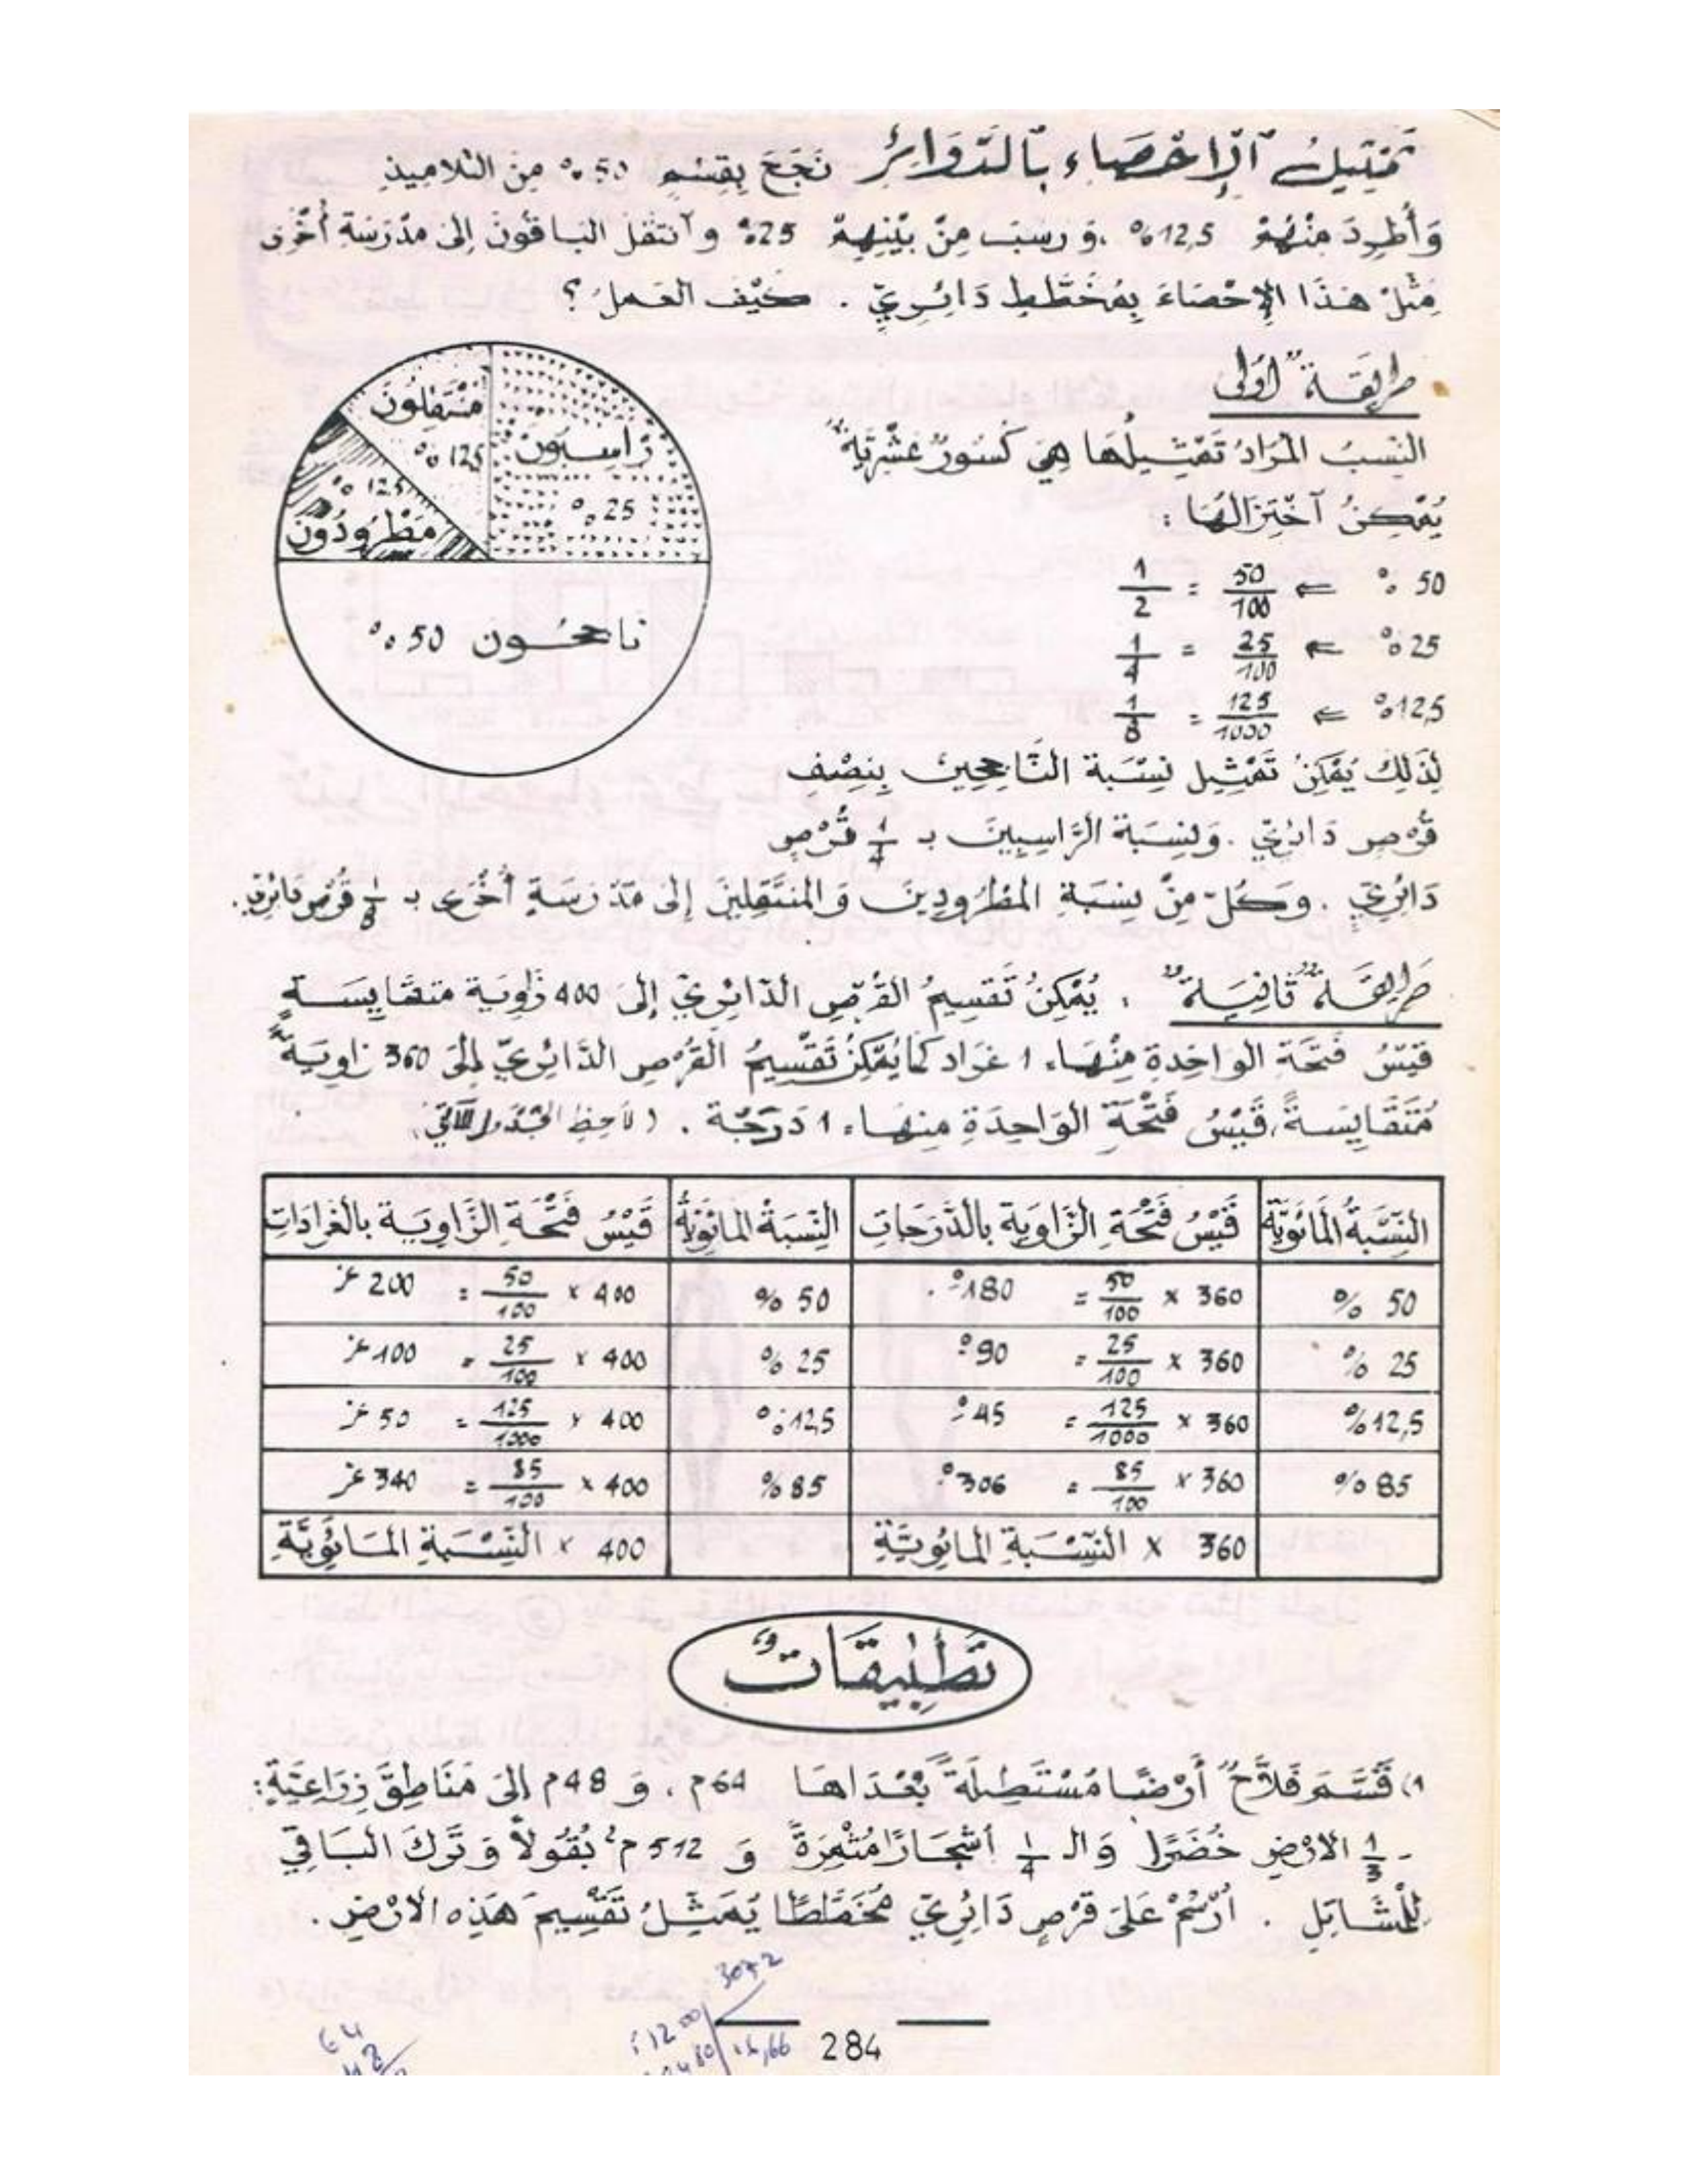 تَمْثِيلُ ٱلْإِحْصَاءِ بِٱلدَّوَائِرِ نَجَحَ بِقِسْمٍ 50 % مِنَ التَّلَامِيذِ
وَأُطْرِدَ مِنْهُمْ 12,5 % ، وَرَسَبَ مِنْ بَيْنِهِمْ 25 % وَٱنْتَقَلَ البَاقُونَ إِلَى مَدْرَسَةٍ أُخْرَى
مَثِّلْ هَذَا الإِحْصَاءَ بِمُخَطَّطٍ دَائِرِيٍّ . كَيْفَ العَمَلُ ؟
طَرِيقَةٌ أُولَى
النِّسَبُ المُرَادُ تَمْثِيلُهَا هِيَ كُسُورٌ عَشْرِيَّةٌ
يُمْكِنُ ٱخْتِزَالُهَا :
50 % ⇐ 50/100 = 1/2
25 % ⇐ 25/100 = 1/4
12,5 % ⇐ 125/1000 = 1/8
مُنْتَقِلُونَ
12,5 %
رَاسِبُونَ
25 %
12,5 %
مَطْرُودُونَ
نَاجِحُون 50 %
لِذَلِكَ يُمْكِنُ تَمْثِيل نِسْبَة النَّاجِحِينَ بِنِصْفِ
قُرْصٍ دَائِرِيٍّ . وَنِسْبَة الرَّاسِبِينَ بـ 1/4 قُرْصٍ
دَائِرِيٍّ . وَكُلّ مِنْ نِسْبَةِ المَطْرُودِينَ وَالمُنْتَقِلِينَ إِلَى مَدْرَسَةٍ أُخْرَى بـ 1/8 قُرْصٍ دَائِرِيٍّ .
طَرِيقَةٌ ثَانِيَةٌ . يُمْكِنُ تَقْسِيمُ القُرْصِ الدَّائِرِيِّ إِلَى 400 زَاوِيَة مُتَقَايِسَةٍ
قَيْسُ فَتْحَةِ الوَاحِدَةِ مِنْهَا، 1 غْرَاد كَمَا يُمْكِنُ تَقْسِيمُ القُرْصِ الدَّائِرِيِّ إِلَى 360 زَاوِيَةً
مُتَقَايِسَةً، قَيْسُ فَتْحَةِ الوَاحِدَةِ مِنْهَا، 1 دَرَجَة . (لَاحِظِ الجَدْوَل الآتِي)
النِّسْبَةُ المَائَوِيَّة | قَيْسُ فَتْحَةِ الزَّاوِيَة بِالدَّرَجَاتِ | النِّسْبَةُ المَائَوِيَّةُ | قَيْسُ فَتْحَةِ الزَّاوِيَة بالغْرَادَاتِ
50 % | 360 × 50/100 = 180° . | 50 % | 400 × 50/100 = 200 غر
25 % | 360 × 25/100 = 90° | 25 % | 400 × 25/100 = 100 غر
12,5 % | 360 × 125/1000 = 45° | 12,5 % | 400 × 125/1000 = 50 غر
85 % | 360 × 85/100 = 306° | 85 % | 400 × 85/100 = 340 غر
360 × النِّسْبَةِ المَائَوِيَّةِ | 400 × النِّسْبَةِ المَائَوِيَّةِ
تَطْبِيقَاتٌ
1) قَسَّمَ فَلَّاحٌ أَرْضًا مُسْتَطِيلَةً بُعْدَاهَا 64 م ، وَ 48 م إِلَى مَنَاطِقَ زِرَاعِيَّةٍ :
- 1/3 الأَرْضِ خُضَرًا وَالـ 1/4 أَشْجَارًا مُثْمِرَةً وَ 512 م² بُقُولاً وَ تَرَكَ البَاقِيَ
لِلْمَشَاتِلِ . اُرْسُمْ عَلَى قُرْصٍ دَائِرِيٍّ مُخَطَّطًا يُمَثِّلُ تَقْسِيمَ هَذِهِ الأَرْضِ .
3072
284